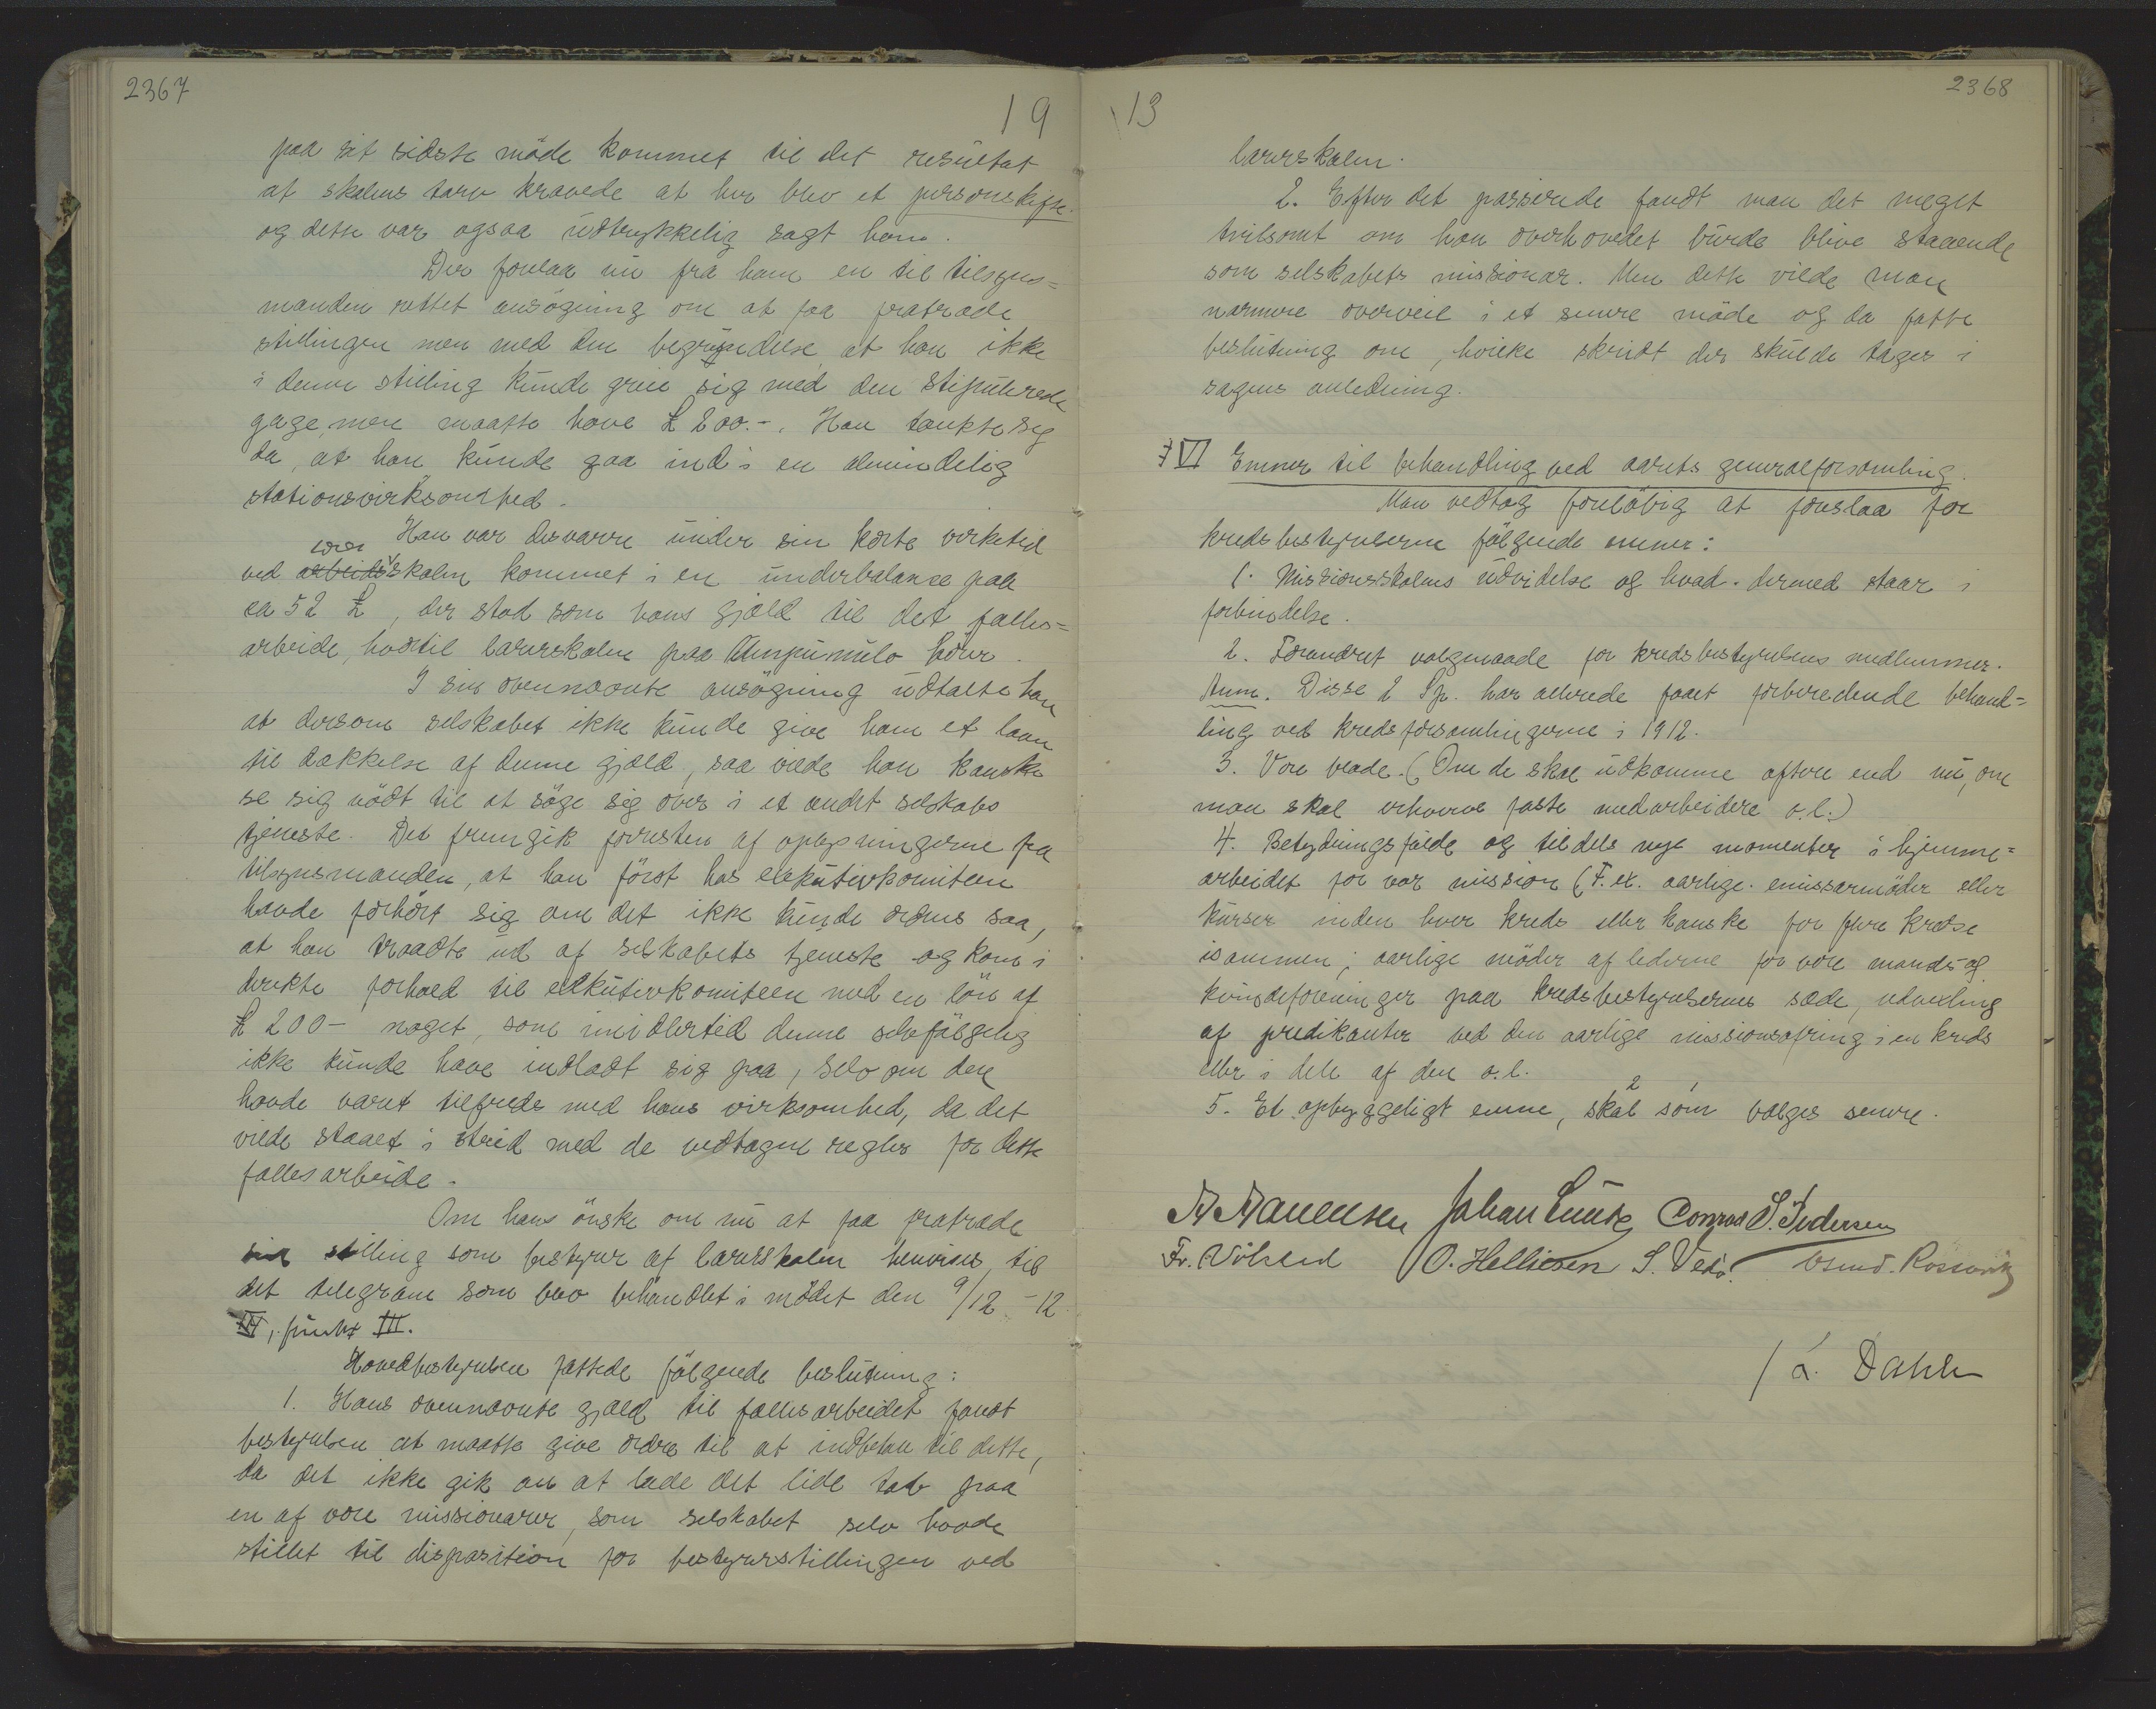 2367
19
paa sit sidste möde kommet til det resultat
at skolens tarv krævede at her blev et personskifte
og dette var ogsaa udtrykkelig sagt ham.
Der forelaa nu fra ham en til tilsyns=
manden rettet ansögning om at faa fratræde
stillingen men med den begrundelse at han ikke
i denne stilling kunde greie sig med den stipulerede
gage, men maatte have £ 200.-. Han tænkte sig
da, at han kunde gaa ind i en almindelig
stationsvirksomhed.
Han var desværre under sin korte virketid
lærer
ved arbeidsskolen kommet i en underbalance paa
ca 52 £, der stod som hans gjæld til det fælles=
arbeide, hvortil lærerskolen paa Umpumulo hörer.
I sin ovennævnte ansögning udtalte han
at dersom selskabet ikke kunde give ham et laan
til dækkelse af denne gjæld, saa vilde han kanske
se sig nödt til at söge sig over i et andet selskabs
tjeneste. Det fremgik forresten af oplysningerne fra
tilsynsmanden, at han först hos eksekutivkomiteen
havde forhört sig om det ikke kunde ordnes saa,
at han traadte ud af selskabets tjeneste og kom i
direkte forhold til eksekutivkomiteen med en lön af
£ 200- noget, som imidlertid denne selvfölgelig
ikke kunde have indladt sig paa, selv om den
havde været tilfreds med hans virksomhed, da det
vilde staaet i strid med de vedtagne regler for dette
fællesarbeide.
Om hans önske om nu at faa fratræde
sin stilling som bestyrer af lærerskolen henvises til
det telegram som blev behandlet i mödet den 9/12 - 12
punkt III.
Hovedbestyrelsen fattede fölgende beslutning:
1. Hans ovennævnte gjæld til fællesarbeidet fandt
bestyrelsen at maatte give ordre til at indbetale til dette,
da det ikke gik an at lade det lide tab paa
en af vore missionærer, som selskabet selv havde
stillet til disposition for bestyrerstillingen ved
13
2368
lærerskolen.
2. Efter det passerede fandt man det meget
tvilsomt om han overhovedet burde blive staaende
som selskabets missionær. Men dette vilde man
nærmere overveie i et senere möde og da fatte
beslutning om, hvilke skridt der skulde tages i
sagens anledning.
VI Emner til behandling ved aarets generalforsamling.
Man vedtog foreløbig at foreslaa for
kredsbestyrelserne fölgende emner:
1. Missionsskolens udvidelse og hvad dermed staar i
forbindelse.
2. Forandret valgmaade for kredsbestyrelsens medlemmer.
Anm. Disse 2 Sp. har allerede faaet forberedende behand=
ling ved kredsforsamlingerne i 1912.
3. Vore blade. (Om de skal udkomme oftere end nu, om
man skal erhverve faste medarbeidere o.l.)
4. Betydningsfulde og tildels nye momenter i hjemme=
arbeidet for vor mission (F. ex. aarlige emissærmöder eller
kurser inden hver kreds eller kanske for flere kredse
isammen; aarlige möder af lederne for vore mands- og
kvindeforeninger paa kredsbestyrelsernes sæde, udvexling
af predikanter ved den aarlige missionsofring i en kreds
eller i dele af den o.l.
2 1
5. Et opbyggeligt emne, skal som vælges senere.
Johan Lunde Conrad S. Pedersen
O. Helliesen
L. Dahle